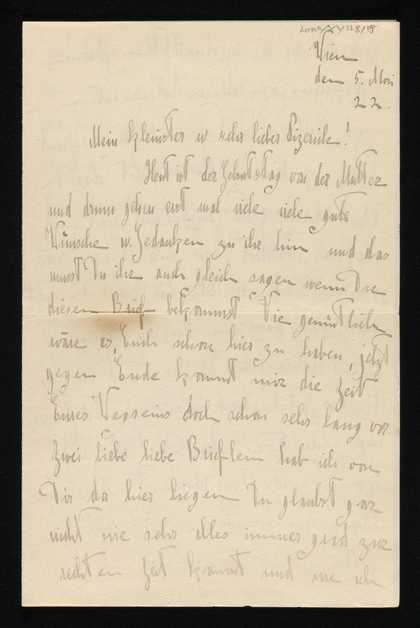 Wien
den 5. Mai
22.
Mein kleinster u sehr lieber !
Heut ist der Geburtstag von der Mutter
und drum gehen erst mal viele viele gute
Wünsche u. Gedanken zu ihr hin und das
musst Du ihr auch gleich sagen wenn Du
diesen Brief bekommst Wie gemütlich
wäre es, Euch schon hier zu haben, jetzt
gegen Ende kommt mir die Zeit
Eures Wegseins doch schon sehr lang vor
Zwei liebe liebe Brieflein hab ich von
Dir da hier liegen Du glaubst gar
nicht wie sehr alles immer grad zur
rechten Zeit kommt und wie ich